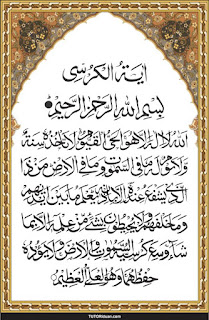 آية الكرسى
بسم الله الرحمن الرحيم
الله لا اله الا هو الحي القيوم لا تأخذه سنة
ولا نوم له ما في السموات وما في الارض من ذا
الذي يشفع عنده الا باذنه يعلم ما بين ايديهم
وما خلفهم ولا يحيطون بشئ من علمه الا بما
شاء وسع كرسيه السموات والارض ولا يؤده
حفظهما وهو العلي العظيم
TUTORIdsan.com